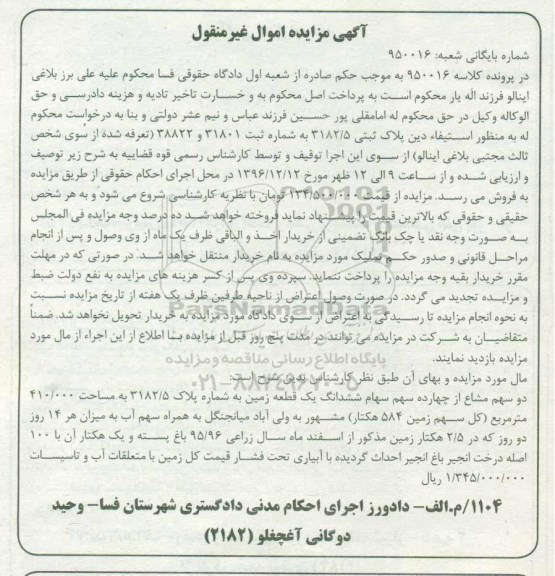 آگهی مزایده اموال غیرمنقول
شماره بایگانی شعبه: ۹۵۰۰۱۶
در پرونده کلاسه ۹۵۰۰۱۶ به موجب حکم صادره از شعبه اول دادگاه حقوقی فسا محکوم علیه علی برز بلاغی
اینالو فرزند اله یار محکوم است به پرداخت اصل محکوم به و خسارت تاخیر تادیه و هزینه دادرسی و حق
الوکاله وکیل در حق محکوم له امامقلی پور حسین فرزند عباس و نیم عشر دولتی و بنا به درخواست محکوم
له به منظور استیفاء دین پلاک ثبتی ۳۱۸۲/۵ به شماره ثبت ۳۱۸۰۱ و ۳۸۸۲۲ (تعرفه شده از سوی شخص
ثالث مجتبی بلاغی اینالو) از سوی این اجرا توقیف و توسط کارشناس رسمی قوه قضاییه به شرح زیر توصیف
و ارزیابی شده و از ساعت ۹ الی ۱۲ ظهر مورخ ۱۳۹۶/۱۲/۱۲ در محل اجرای احکام حقوقی از طریق مزایده
به فروش می رسد. مزایده از قیمت تومان با نظریه کارشناسی شروع می شود و به هر شخص
حقیقی و حقوقی که بالاترین قیمت را پیشنهاد نماید فروخته خواهد شد ده درصد وجه مزایده فی المجلس
به صورت وجه نقد یا چک بانک تضمینی از خریدار اخذ و الباقی ظرف یک ماه از وی وصول و پس از انجام
مراحل قانونی و صدور حکم تملیک مورد مزایده به نام خریدار منتقل خواهد شد. در صورتی که در مهلت
مقرر خریدار بقیه وجه مزایده را پرداخت ننماید. سپرده وی پس از کسر هزینه های مزایده به نفع دولت ضبط
و مزایده تجدید می گردد. در صورت وصول اعتراض از ناحیه طرفین ظرف یک هفته از تاریخ مزایده نسبت
به نحوه انجام مزایده تا رسیدگی به اعتراض از سوی دادگاه مورد مزایده به خریدار تحویل نخواهد شد. ضمنا
متقاضیان به شرکت در مزایده می توانند در مدت پنج روز قبل از مزایده با اطلاع از این اجراء از مال مورد
مزایده بازدید نمایند.
مال مورد مزایده و بهای آن طبق نظر کارشناس بدین شرح است:
دو سهم مشاع از چهارده سهم سهام ششدانگ یک قطعه زمین به شماره پلاک ۳۱۸۲/۵ به مساحت ۴۱۰/۰۰۰
مترمربع (کل سهم زمین ۵۸۴ هکتار) مشهور به ولی آباد میانجنگل به همراه سهم آب به میزان هر ۱۴ روز
دو روز که در ۲/۵ هکتار زمین مذکور از اسفند ماه سال زراعی ۹۵/۹۶ باغ پسته و یک هکتار آن با ۱۰۰
اصله درخت انجیر باغ انجیر احداث گردیده با آبیاری تحت فشار قیمت کل زمین با متعلقات آب و تاسیسات
۱/۳۴۵/۰۰۰/۰۰۰ ریال
۱۱۰۴/م.الف- دادورز اجرای احکام مدنی دادگستری شهرستان فسا- وحید
دوگانی آغچغلو (۲۱۸۲)
ParsNamadData
پایگاه اطلاع رسانی مناقصه و مزایده
۰۲۱-۸۸۳۴۹۶۷۰-۵